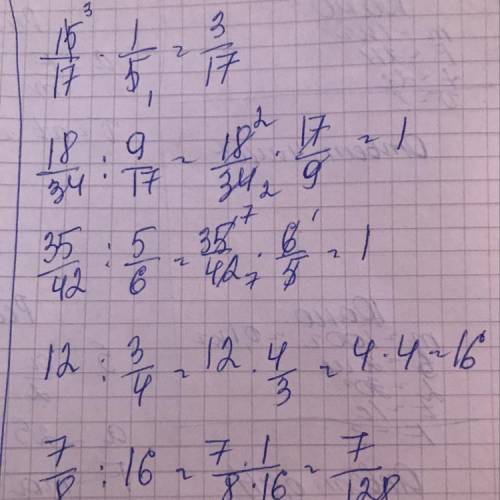 15³/17 · 1/5₁ = 3/17
18/34 : 9/17 = 18²/34₂ · 17/9 = 1
35/42 : 5/6 = 35⁷/42₇ · 6¹/5 = 1
12 : 3/4 = 12 · 4/3 = 4 · 4 = 16
7/8 : 16 = 7·1/8·16 = 7/128